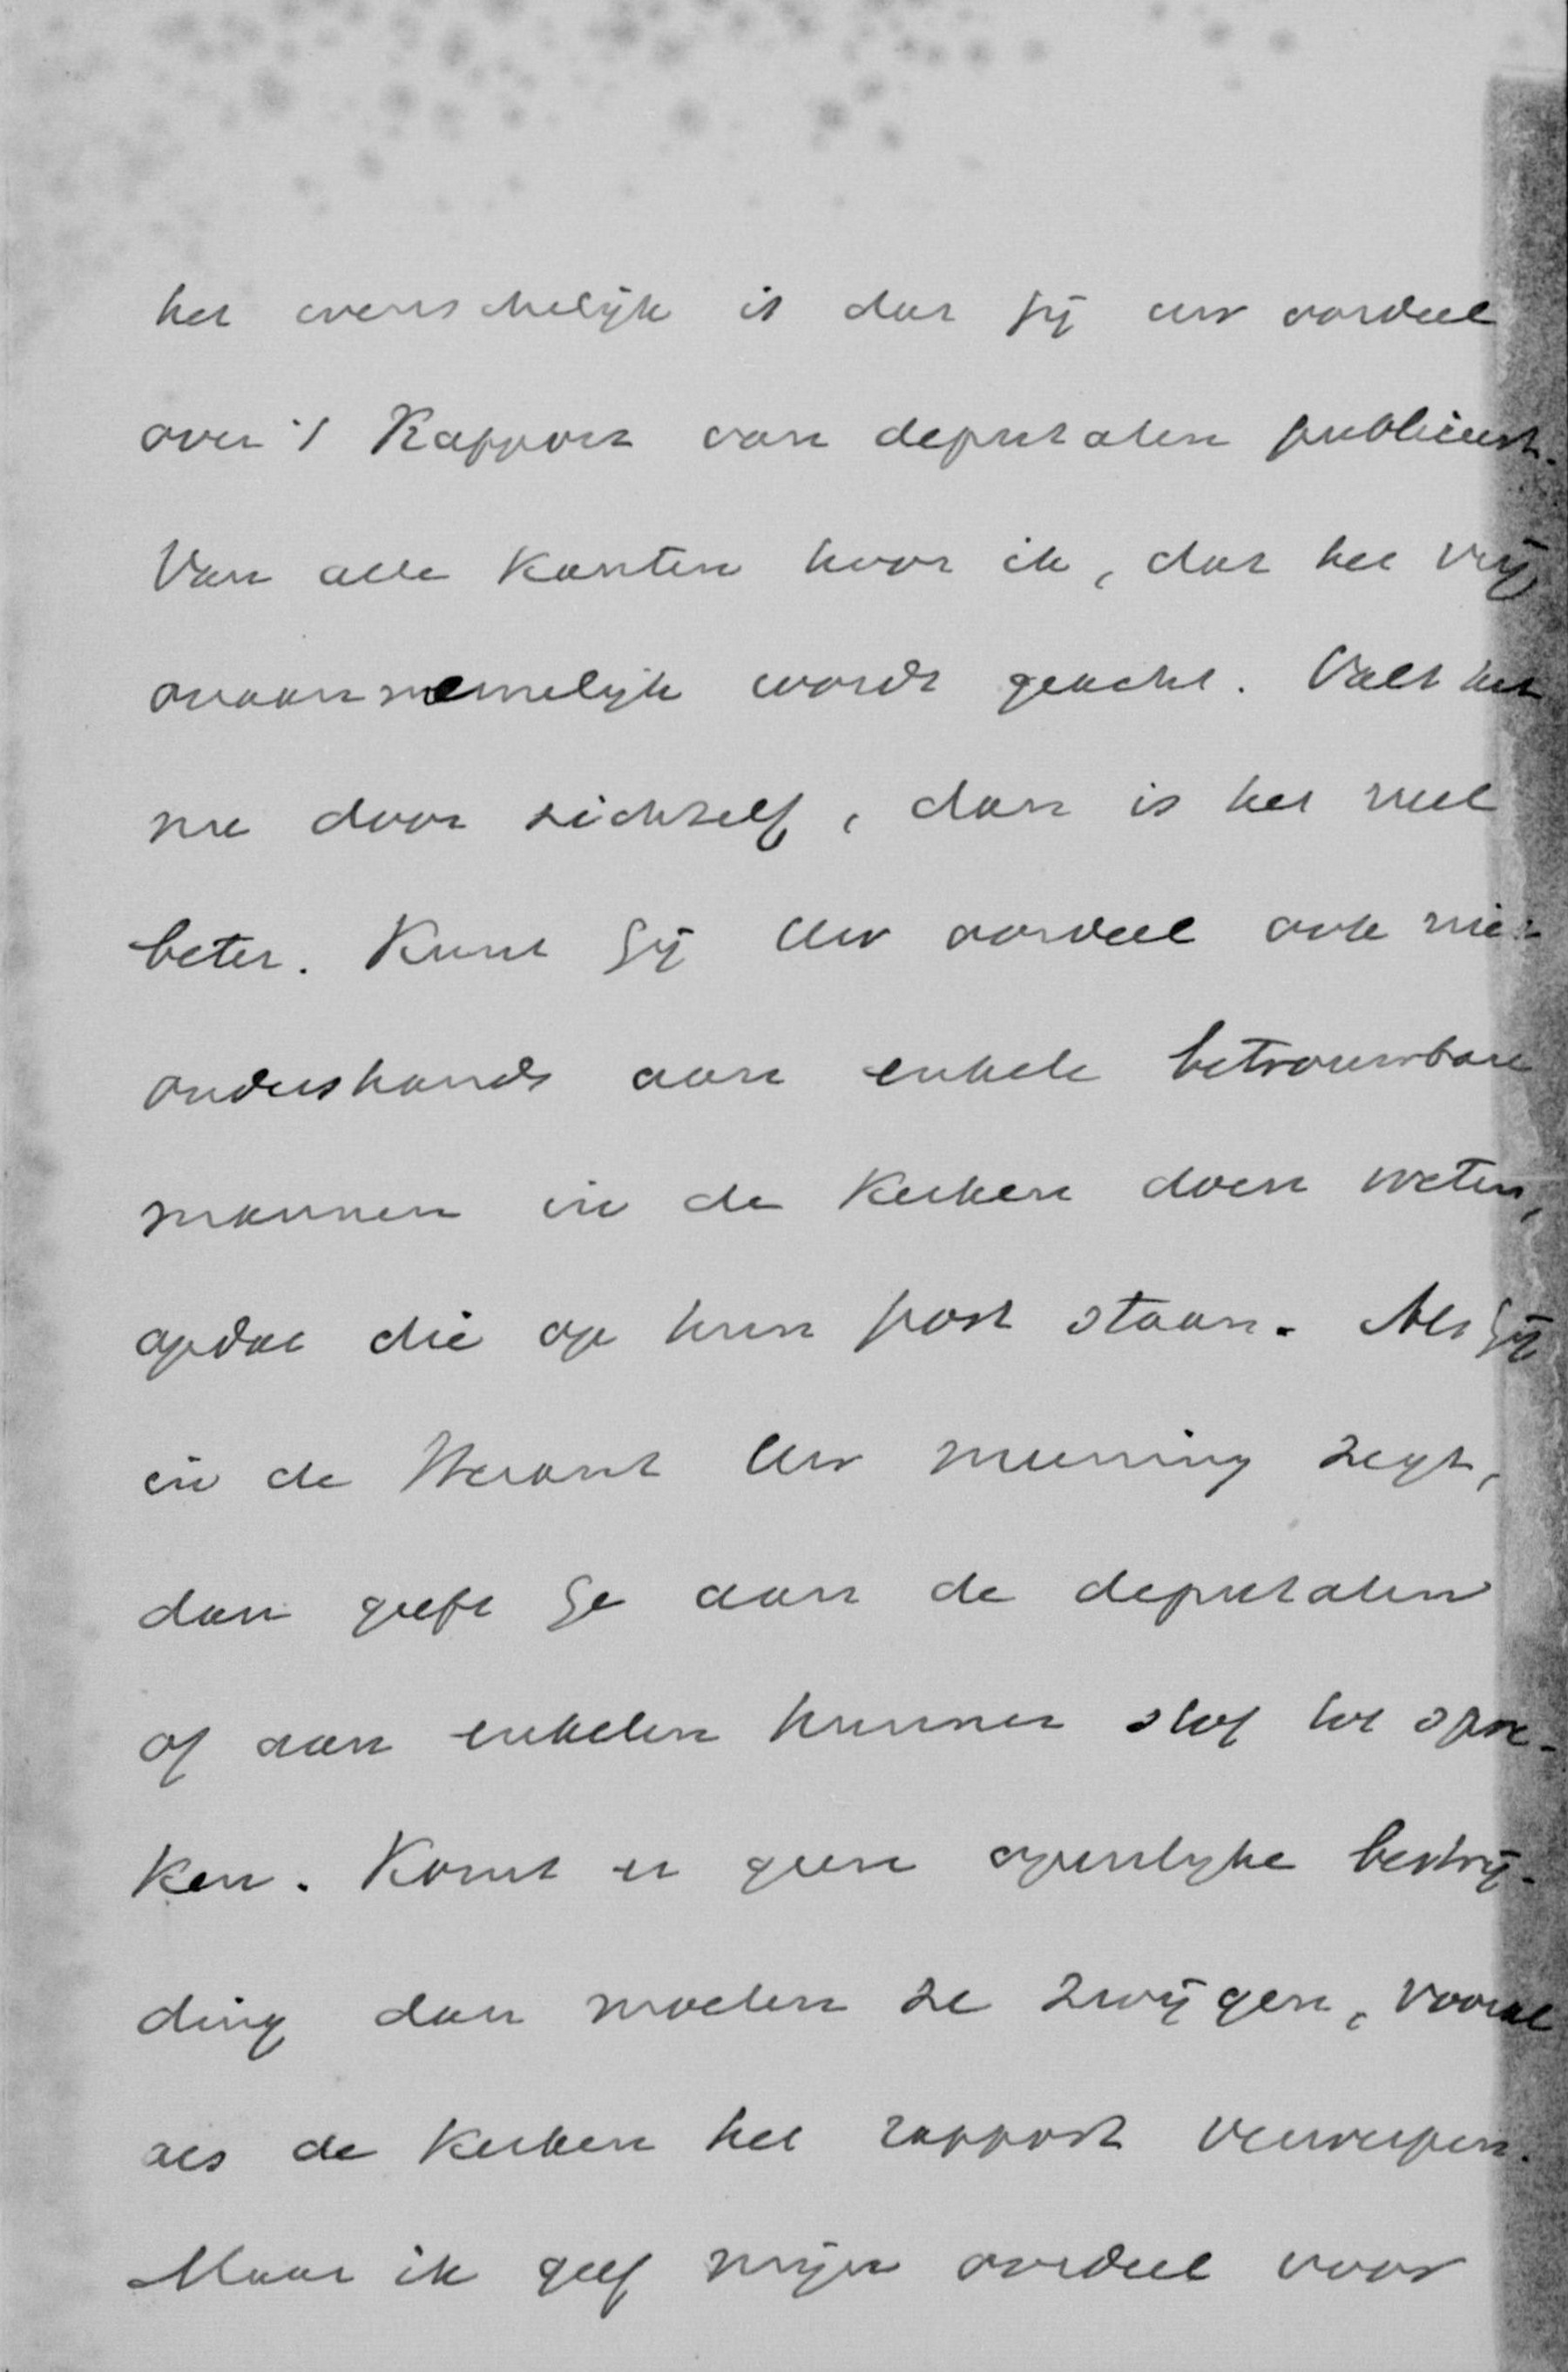 het wenschelijk is dat Gij uw oordeel
over 't Rapport van deputaten publiceert.
Van alle kanten hoor ik, dat het vrij
onaannemelijk wordt geacht. Valt het
nu door zichzelf, dan is het veel
beter. Kunt Gij Uw oordeel ook niet
onderhands aan enkele betrouwbare
mannen in de Kerken doen weten,
opdat die op hun post staan. Als Gij
in de Heraut Uw meening zegt,
dan geeft Ge aan de deputaten
of aan enkelen hunner stof tot spre-
ken. Komt er geen openlijke bestrij-
ding dan moeten ze zwijgen, vooral
als de Kerken het rapport verwerpen.
Maar ik geef mijn oordeel voor